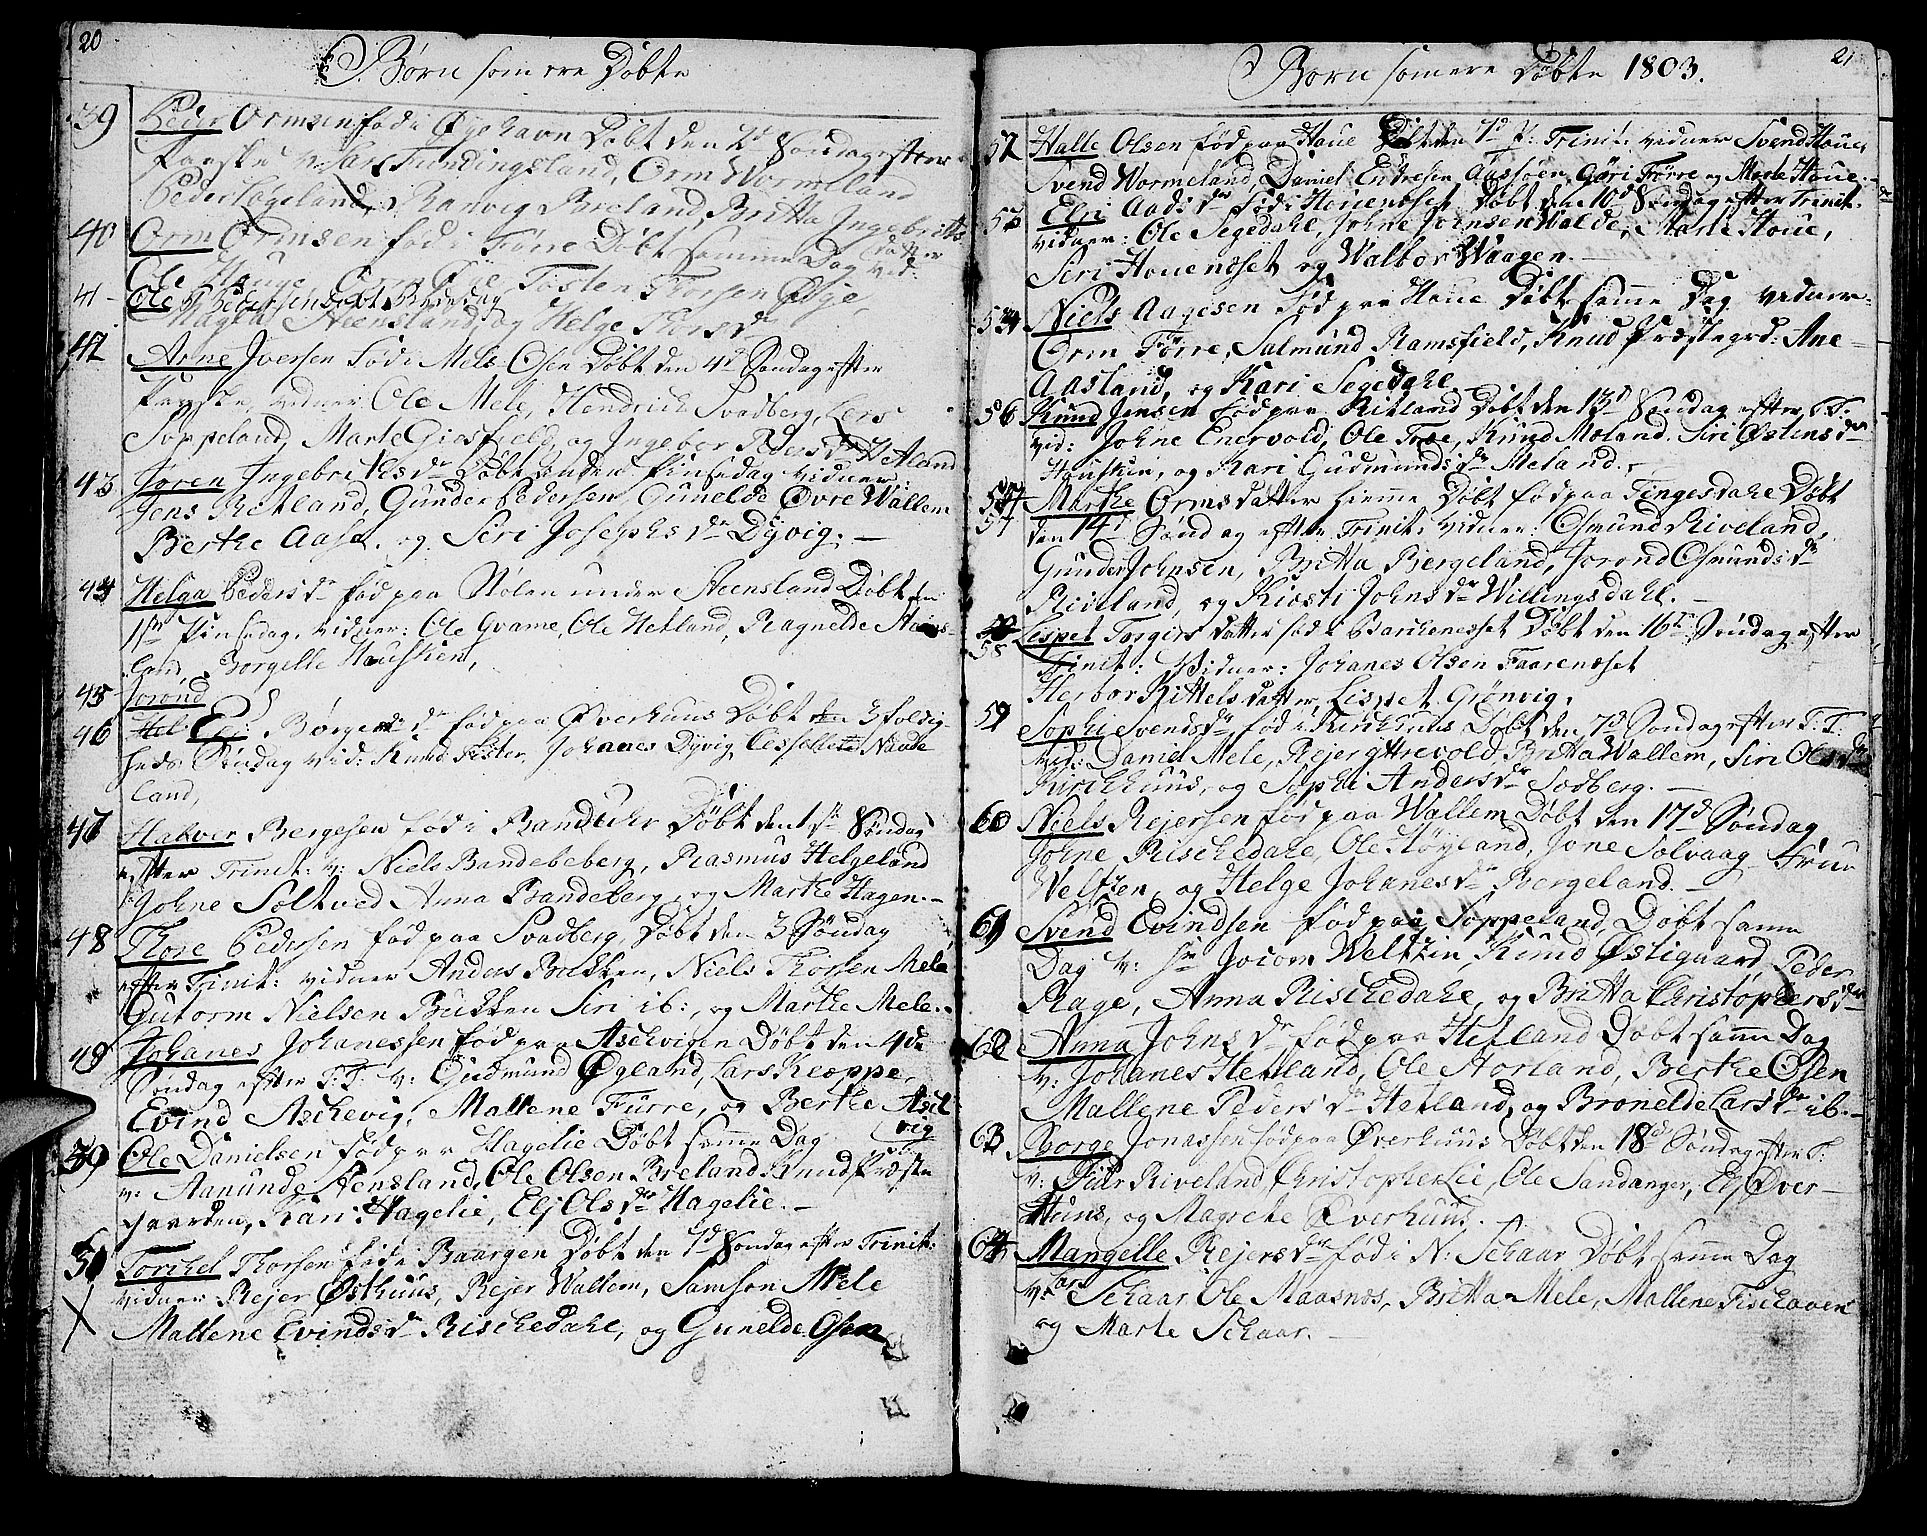 20
Børn som ere Døbte
39 Peder Ormsen fød i Øyehavn Døbt den 2d Søndag efter
Paaske v: Lars Tundingsland, Orm Wormeland
Peder Løgeland, Ranvig Breland, Britta Ingebrits
datter
40 Orm Ormsen fød i Førre Døbt samme Dag vid:
Ole Houe, Orm Øye, Tosten Torsen Øye,
41 Ole Pedersen Døbt Bededag
Magell Steensland, og Helge Thors dr
42 Arne Iversen Fød i Mele Osen Døbt den 4d Søndag efter
Paaske vidner Ole Mele, Hendrich Svadberg, Lers
Soppeland, Marte Giosfield, og Ingebor Peders dr Haland
43 Joren Ingebrikts dr Døbt anden Pinsedag vidner:
Jens Retland, Gunder Pedersen Gunelde Øvre Wallem
Berthe Aase, og Seri Josephs dr Dyvig. —
44 Helga Peders dr fød paa Stølen under Steensland Døbt den
1ste Pinsedag, vidner: Ole Qvame, Ole Hetland, Ragnelde Steens-
land, Borgelle Hausken,
45 Jorond
46 Hel Eli Børges dr fød paa Øverhuus Døbt den 3foldig
heds Søndag vid: Knud Foster, Johanes Dyvig Cesselle Nade
land,
47 Halvor Bergesen fød i Bandeber Døbt den 1ste Søndag
efter Trinit: v: Niels Bandebeberg, Rasmus Helgeland
Johne Soltved Anna Bandeberg, og Marthe Hagen. —
48 Thore Pedersen fød paa Svadberg, Døbt den 3 Søndag
efter Trinit: vidner Anders Bukken, Niels Thorsen Mele
Gutorm Nielsen Bukken Siri ib:, og Marthe Mele.
49 Johanes Johanessen fød paa Aschvigen Døbt den 4de
Søndag efter T:T: v: Gudmund Øgland, Lars Keoppe,
Evind Aschevig, Mallene Furre, og Berthe Asch
vig
49 Ole Danielsen fød paa Hagelie Døbt samme Dag
v: Aanunde Stensland, Ole Olsen Breland Knud Præste
gaarden, Kari Hagelie, Elj Ols dr Hagelie. —
50 Torchel Thorsen fød i Baargen Døbt den 7d Søndag efter Trinit:
vidner Rejer Østhuus, Rejer Wallem, Samson Mele
Mallene Evinds dr Rischedahl, og Gunelde Osen
21
Børn som ere Døbte 1803.
52 Halle Olsen fød paa Houe Døbt den 7d S: Trinit: vidner Svend Houe,
Svend Wormeland, Daniel Endresen Aassøen, Gøri Førre og Marte Houe.
53 Elsi Aads dr fød i Houenæset Døbt den 10d Søndag efter Trinit.
vidner: Ole Segedahl, Johne Joensen Walde, Marte Houe,
Seri Houenæset og Walbor Waagen. —
54 Niels Aagesen Fød paa Houe Døbt samme Dag vidner
Orm Førre, Salmund Ramsfield, Knud Præstegrd: Ane
Aasland, og Kari Segedahl
56 Knud Jensen fød paa Ritland Døbt den 13d Søndag efter T:T:
vid: Johne Enervold, Ole Træ, Knud Moland. Siri Østens dr
Hausken, og Kari Gudmunds dr Meland. —
57 Marthe Ormsdatter hieme Døbt fød paa Tingesdahl Døbt
57 den 14d Søndag efter Trinit: vidner: Osmund Riveland,
Gunder Johnsen, Britta Bergeland, Jorond Osmunds dr
Riveland, og Kirsti Johns dr Willingsdahl. —
58 Lispet Torgirs datter fød i Barchenesset Døbt den 16te Søndag efter
58 Trinit: Vidner: Johanes Olsen Faarenæset
Herbor Kittels datter, Lispet Grønvig,
59 Sophi Svends dr fød i Kirchhuus Døbt den 17d Søndag efter T:T:
vid: Daniel Mele, Rejer Hrevold, Britta Wallem, Siri Ols dr
Kirchhuus, og Sophi Anders dr Svdberg. —
60 Niels Rejersen fød paa Wallem Døbt den 17d Søndag
Johne Rischedahl, Ole Høyland, Jone Solvaag Frue
Weltzen, og Helge Johanes dr Bergeland. —
61 Svend Evindsen fød paa Soppeland, Døbt samme
Dag v: Hr Jocom Weltzin, Knud Østigaard, Peder
Rage, Anna Rischedahl, og Britta Christophers dr
62 Anna Johns dr fød paa Hetland Døbt samme Dag
v: Johanes Hetland, Ole Horland, Berthe Osen
Mallene Peders dr Hetland, og Bronelde Lars dr ib. —
63 Børge Jonassen fød paa Øverhuus Døbt den 18d Søndag efter T:
v: Peder Riveland, Christopher Lie, Ole Sandanger, Elj Øver-
Huus, og Magrete Øverhuus.
64 Mangelle Rejers dr fød i N: Schaar Døbt samme Dag
v: Lars Schaar, Ole Maasnæs, Britta Mele, Mallene Fischaaen
og Marte Schaar. —